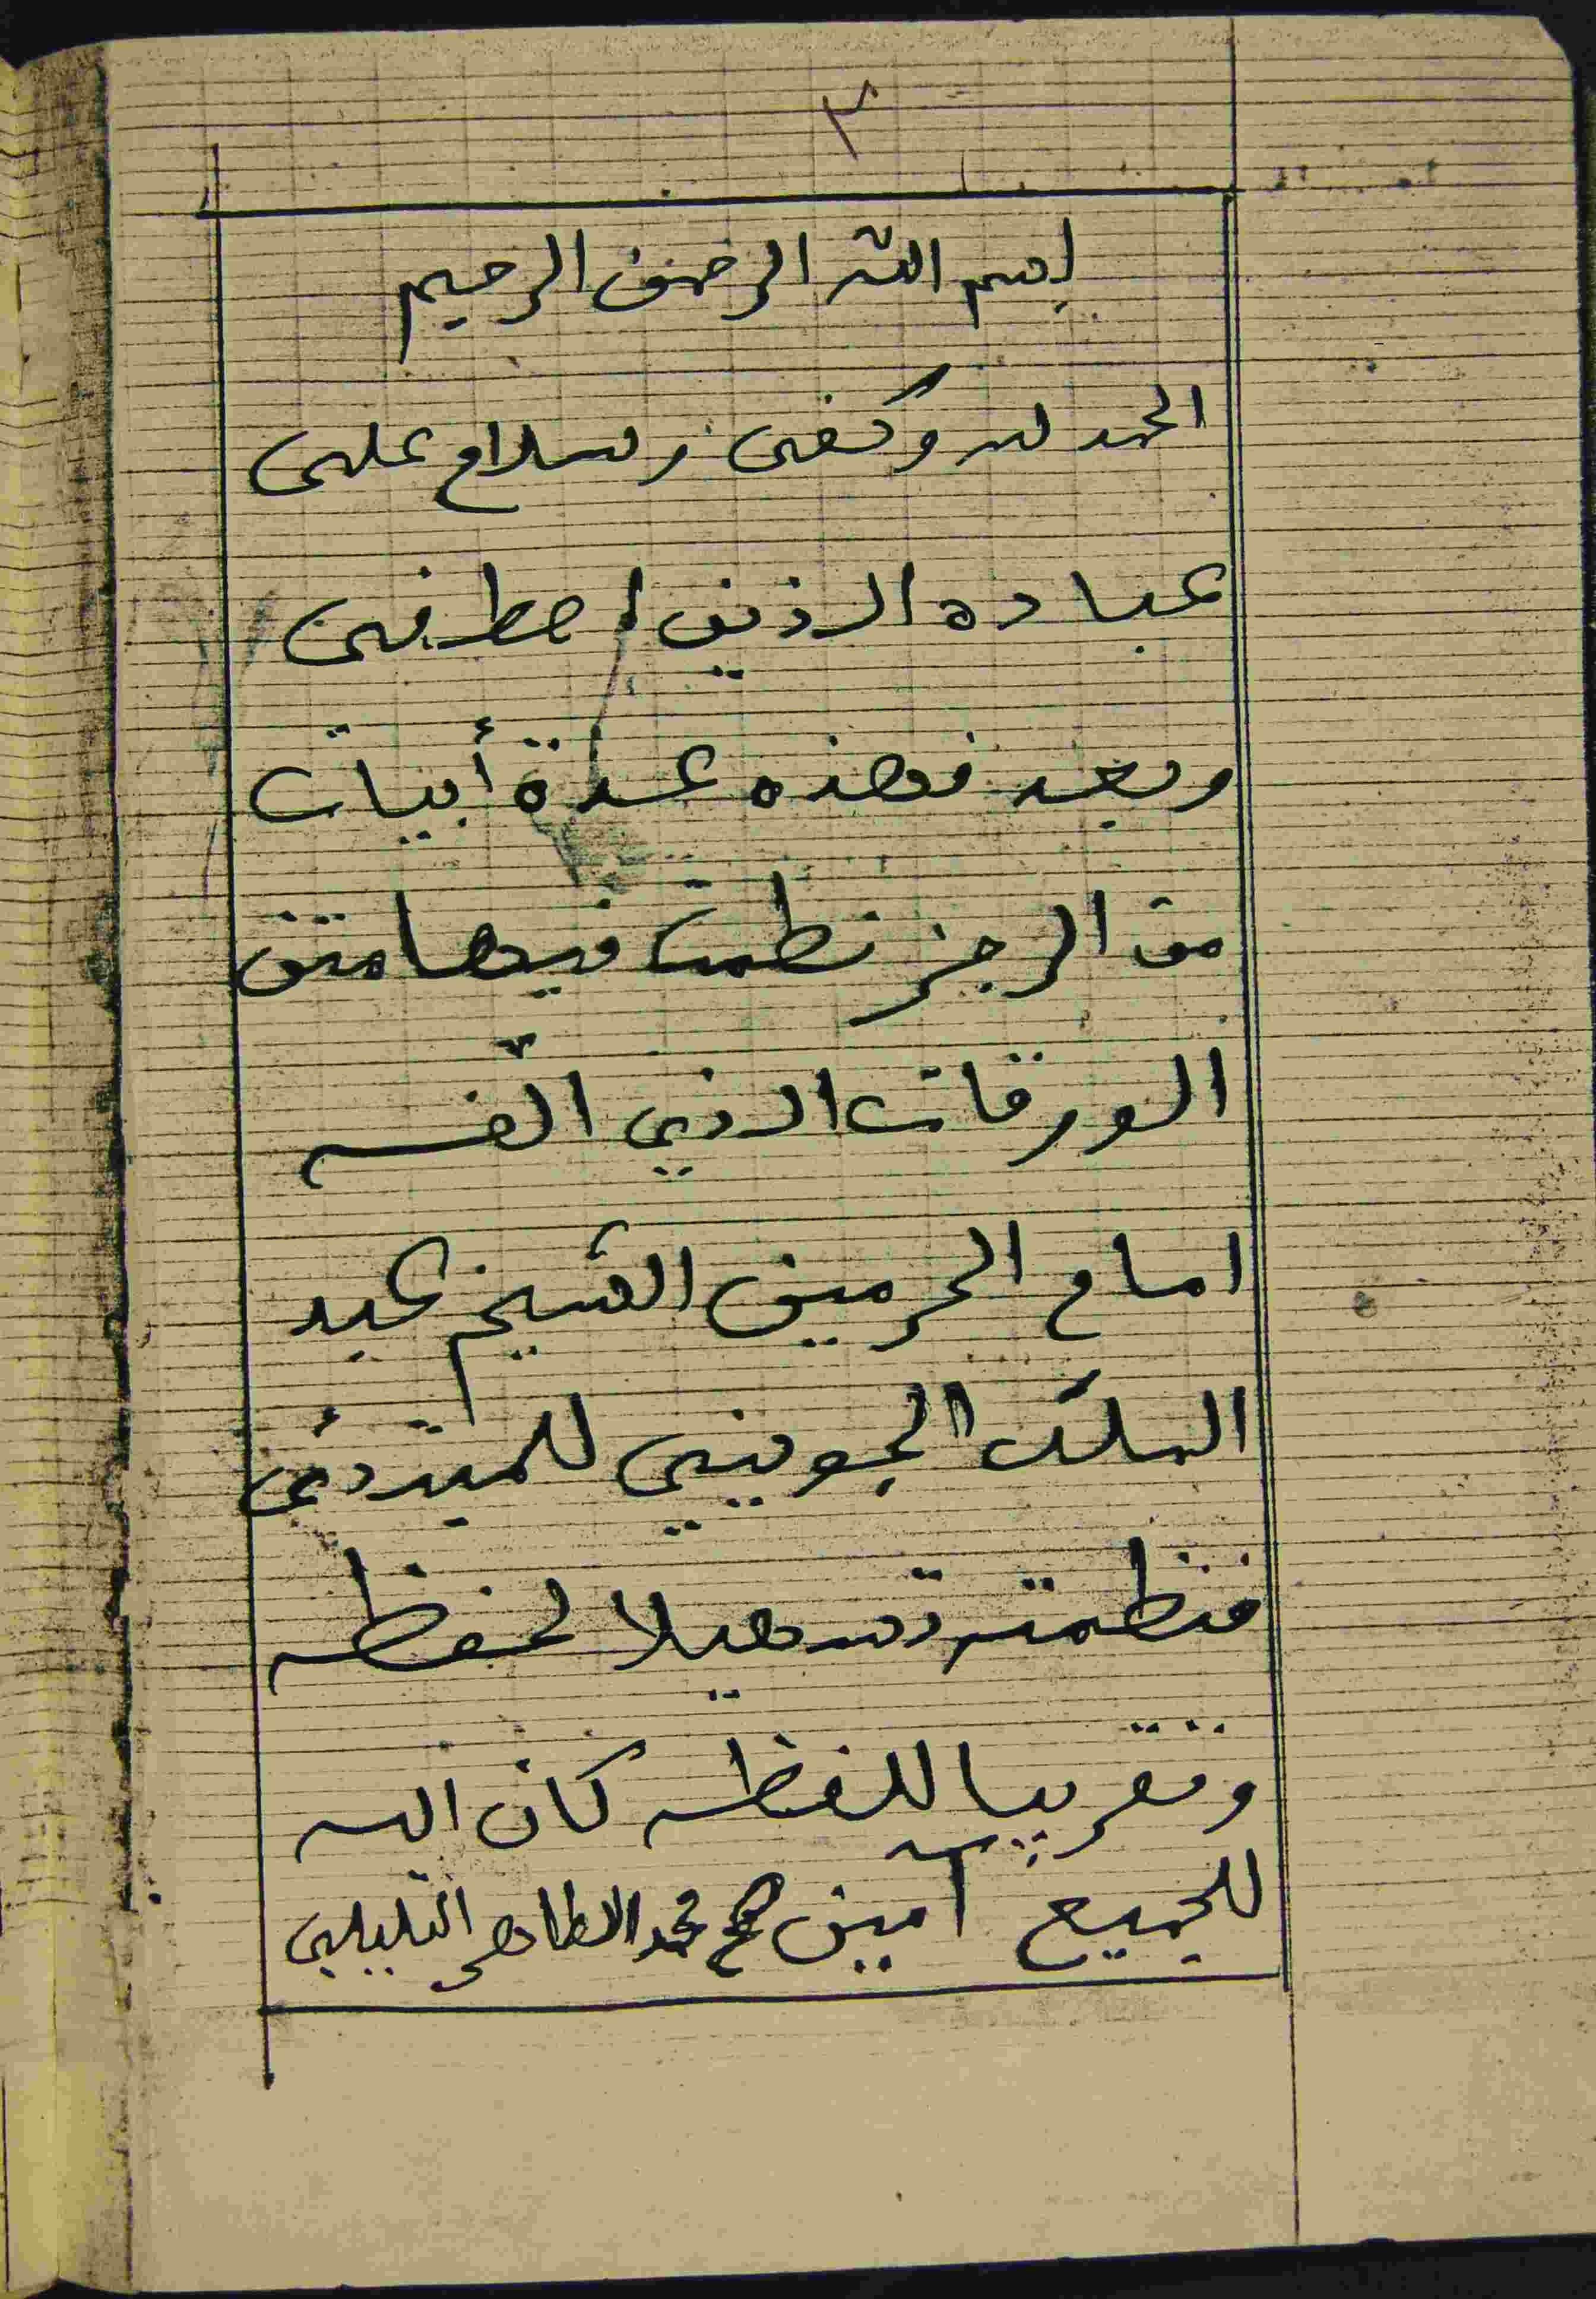 ٣
بسم الله الرحمن الرحيم
الحمد لله وكفى وسلام على
عباده الذين اصطفى
وبعد فهذه عدة أبيات
من الرجز نظمت فيها متن
الورقات الذي الّفه
امام الحرمين الشيخ عبد
الملك الجويني للمبتدئ
فنظمته تسهيلا لحفظه
وتقريبا للفظه كان الله
للجميع آمين محمد الطاهر التليلي